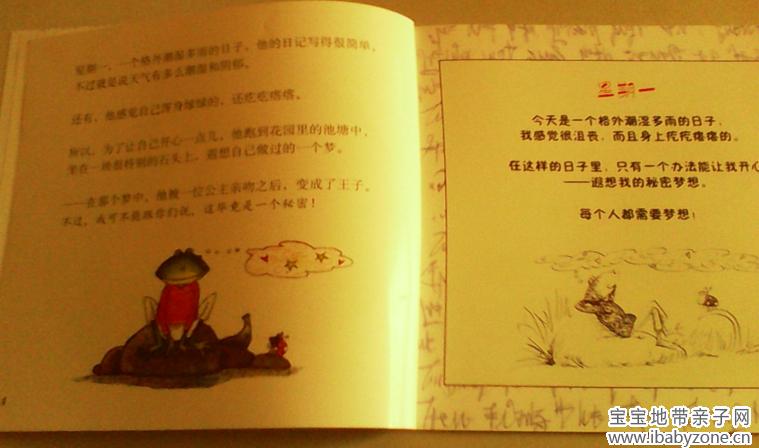 星期一，一个格外潮湿多雨的日子，他的日记写得很简单，
不过就是说天气有多么潮湿和阴郁。
还有，他感觉自己浑身绿绿的，还疙疙瘩瘩。
所以，为了让自己开心一点儿，他跑到花园里的池塘中，
坐在一块很特别的石头上，遐想自己做过的一个梦。
——在那个梦中，他被一位公主亲吻之后，变成了王子。
不过，我可不能跟你们说，这毕竟是一个秘密！
星期一
今天是一个格外潮湿多雨的日子，
我感觉很沮丧，而且身上疙疙瘩瘩的。
在这样的日子里，只有一个办法能让我开心
——遐想我的秘密梦想。
每个人都需要梦想！
宝宝地带亲子网
www.ibabyzone.cn